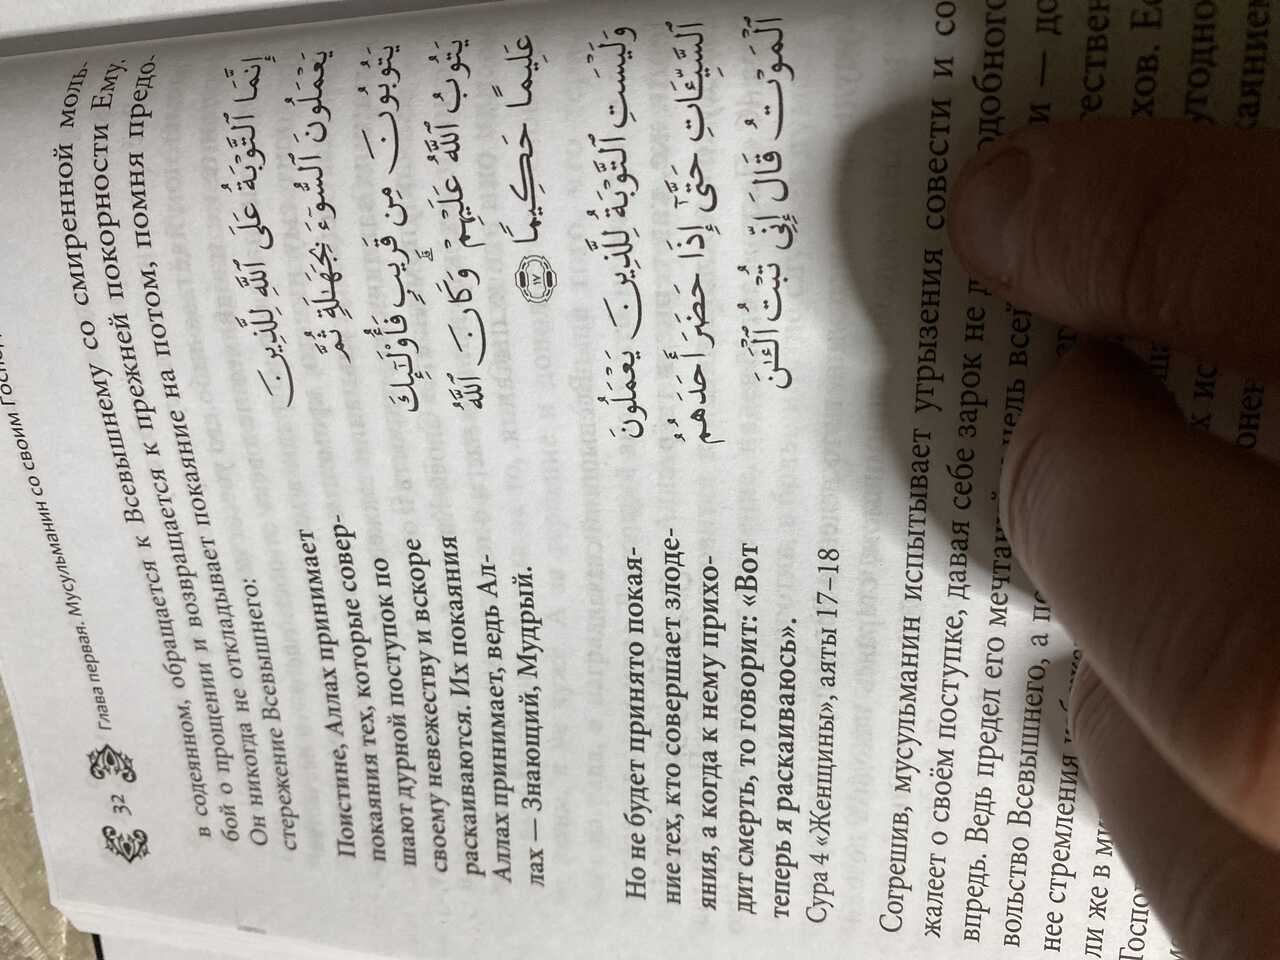 32 Глава первая. Мусульманин со своим Госпо
в содеянном, обращается к Всевышнему со смиренной моль-
бой о прощении и возвращается к прежней покорности Ему.
Он никогда не откладывает покаяние на потом, помня предо-
стережение Всевышнего:
Поистине, Аллах принимает
покаяния тех, которые совер-
шают дурной поступок по
своему невежеству и вскоре
раскаиваются. Их покаяния
Аллах принимает, ведь Ал-
лах — Знающий, Мудрый.
إِنَّمَا ٱلتَّوْبَةُ عَلَى ٱللَّهِ لِلَّذِينَ
يَعْمَلُونَ ٱلسُّوٓءَ بِجَهَٰلَةٍ ثُمَّ
يَتُوبُونَ مِن قَرِيبٍ فَأُو۟لَٰٓئِكَ
يَتُوبُ ٱللَّهُ عَلَيْهِمْ ۗ وَكَانَ ٱللَّهُ
عَلِيمًا حَكِيمًا ١٧
Но не будет принято покая-
ние тех, кто совершает злоде-
яния, а когда к нему прихо-
дит смерть, то говорит: «Вот
теперь я раскаиваюсь».
Сура 4 «Женщины», аяты 17–18
وَلَيْسَتِ ٱلتَّوْبَةُ لِلَّذِينَ يَعْمَلُونَ
ٱلسَّيِّـَٔاتِ حَتَّىٰٓ إِذَا حَضَرَ أَحَدَهُمُ
ٱلْمَوْتُ قَالَ إِنِّى تُبْتُ ٱلْـَٰٔنَ
Согрешив, мусульманин испытывает угрызения совести и со
жалеет о своём поступке, давая себе зарок не одобного
впредь. Ведь предел его мечтаний цель всей и — до
вольство Всевышнего, а по ествен
нее стремления хов. Ес
ли же в ми х ис угодно
Госпо онен каянием